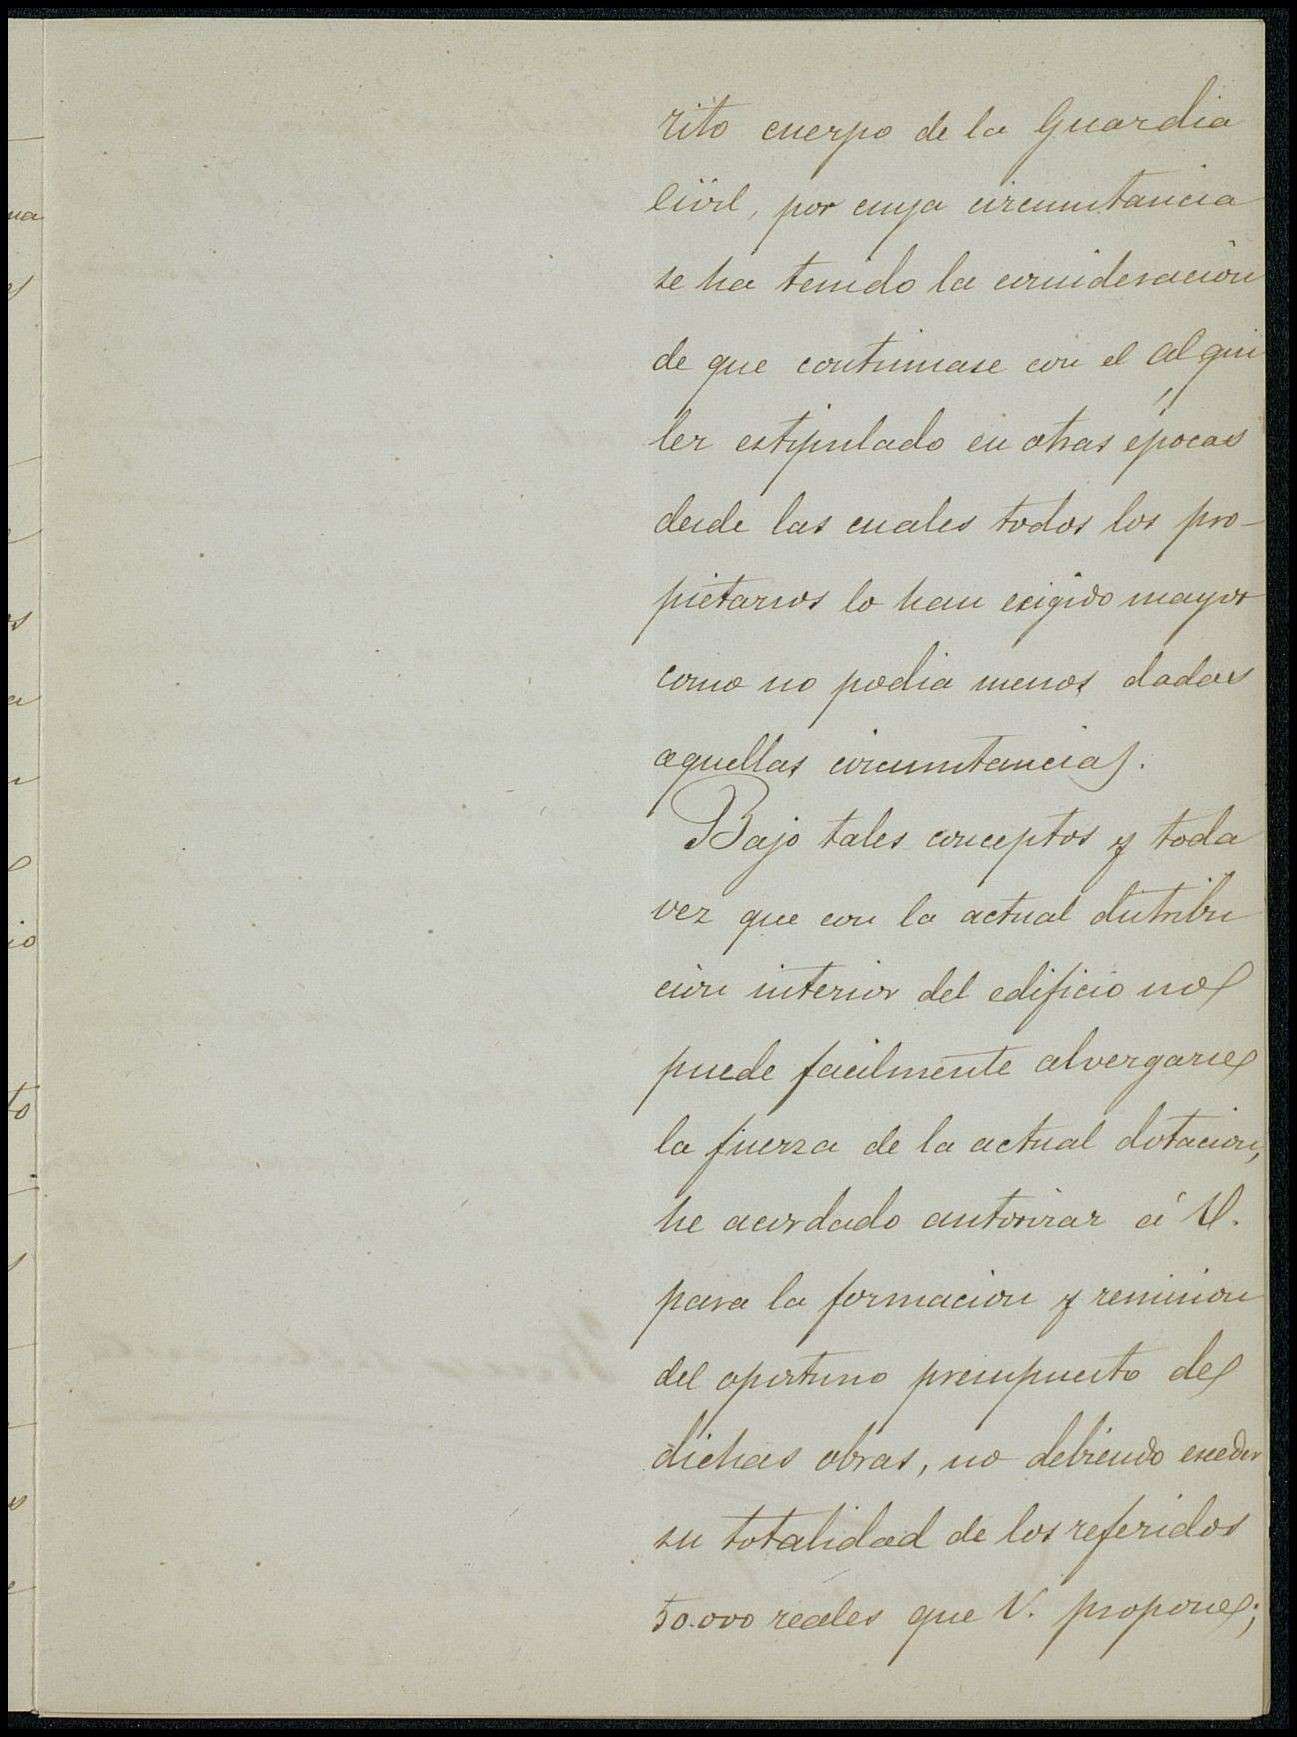 rito cuerpo de la Guardia
Civil, por cuya circunstancia
se ha tenido la consideracion
de que continuase con el alqui
ler estipulado en otras épocas
desde las cuales todos los pro-
pietarios lo han exigido mayor
como no podia menos dadas
aquellas circunstancias.
Bajo tales conceptos y toda
vez que con la actual distribu
cion interior del edificio no
puede facilmente alvergarse
la fuerza de la actual dotacion,
he acordado autorizar á V.
para la formacion y remision
del oportuno presupuesto de
dichas obras, no debiendo exceder
su totalidad de los referidos
50.000 reales que V. propone;
na
os
a
io
to